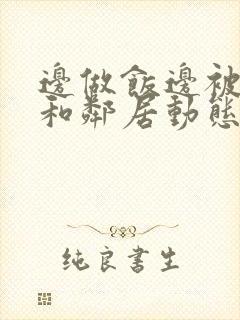 邊做飯邊被
和鄰居動態
純良書生